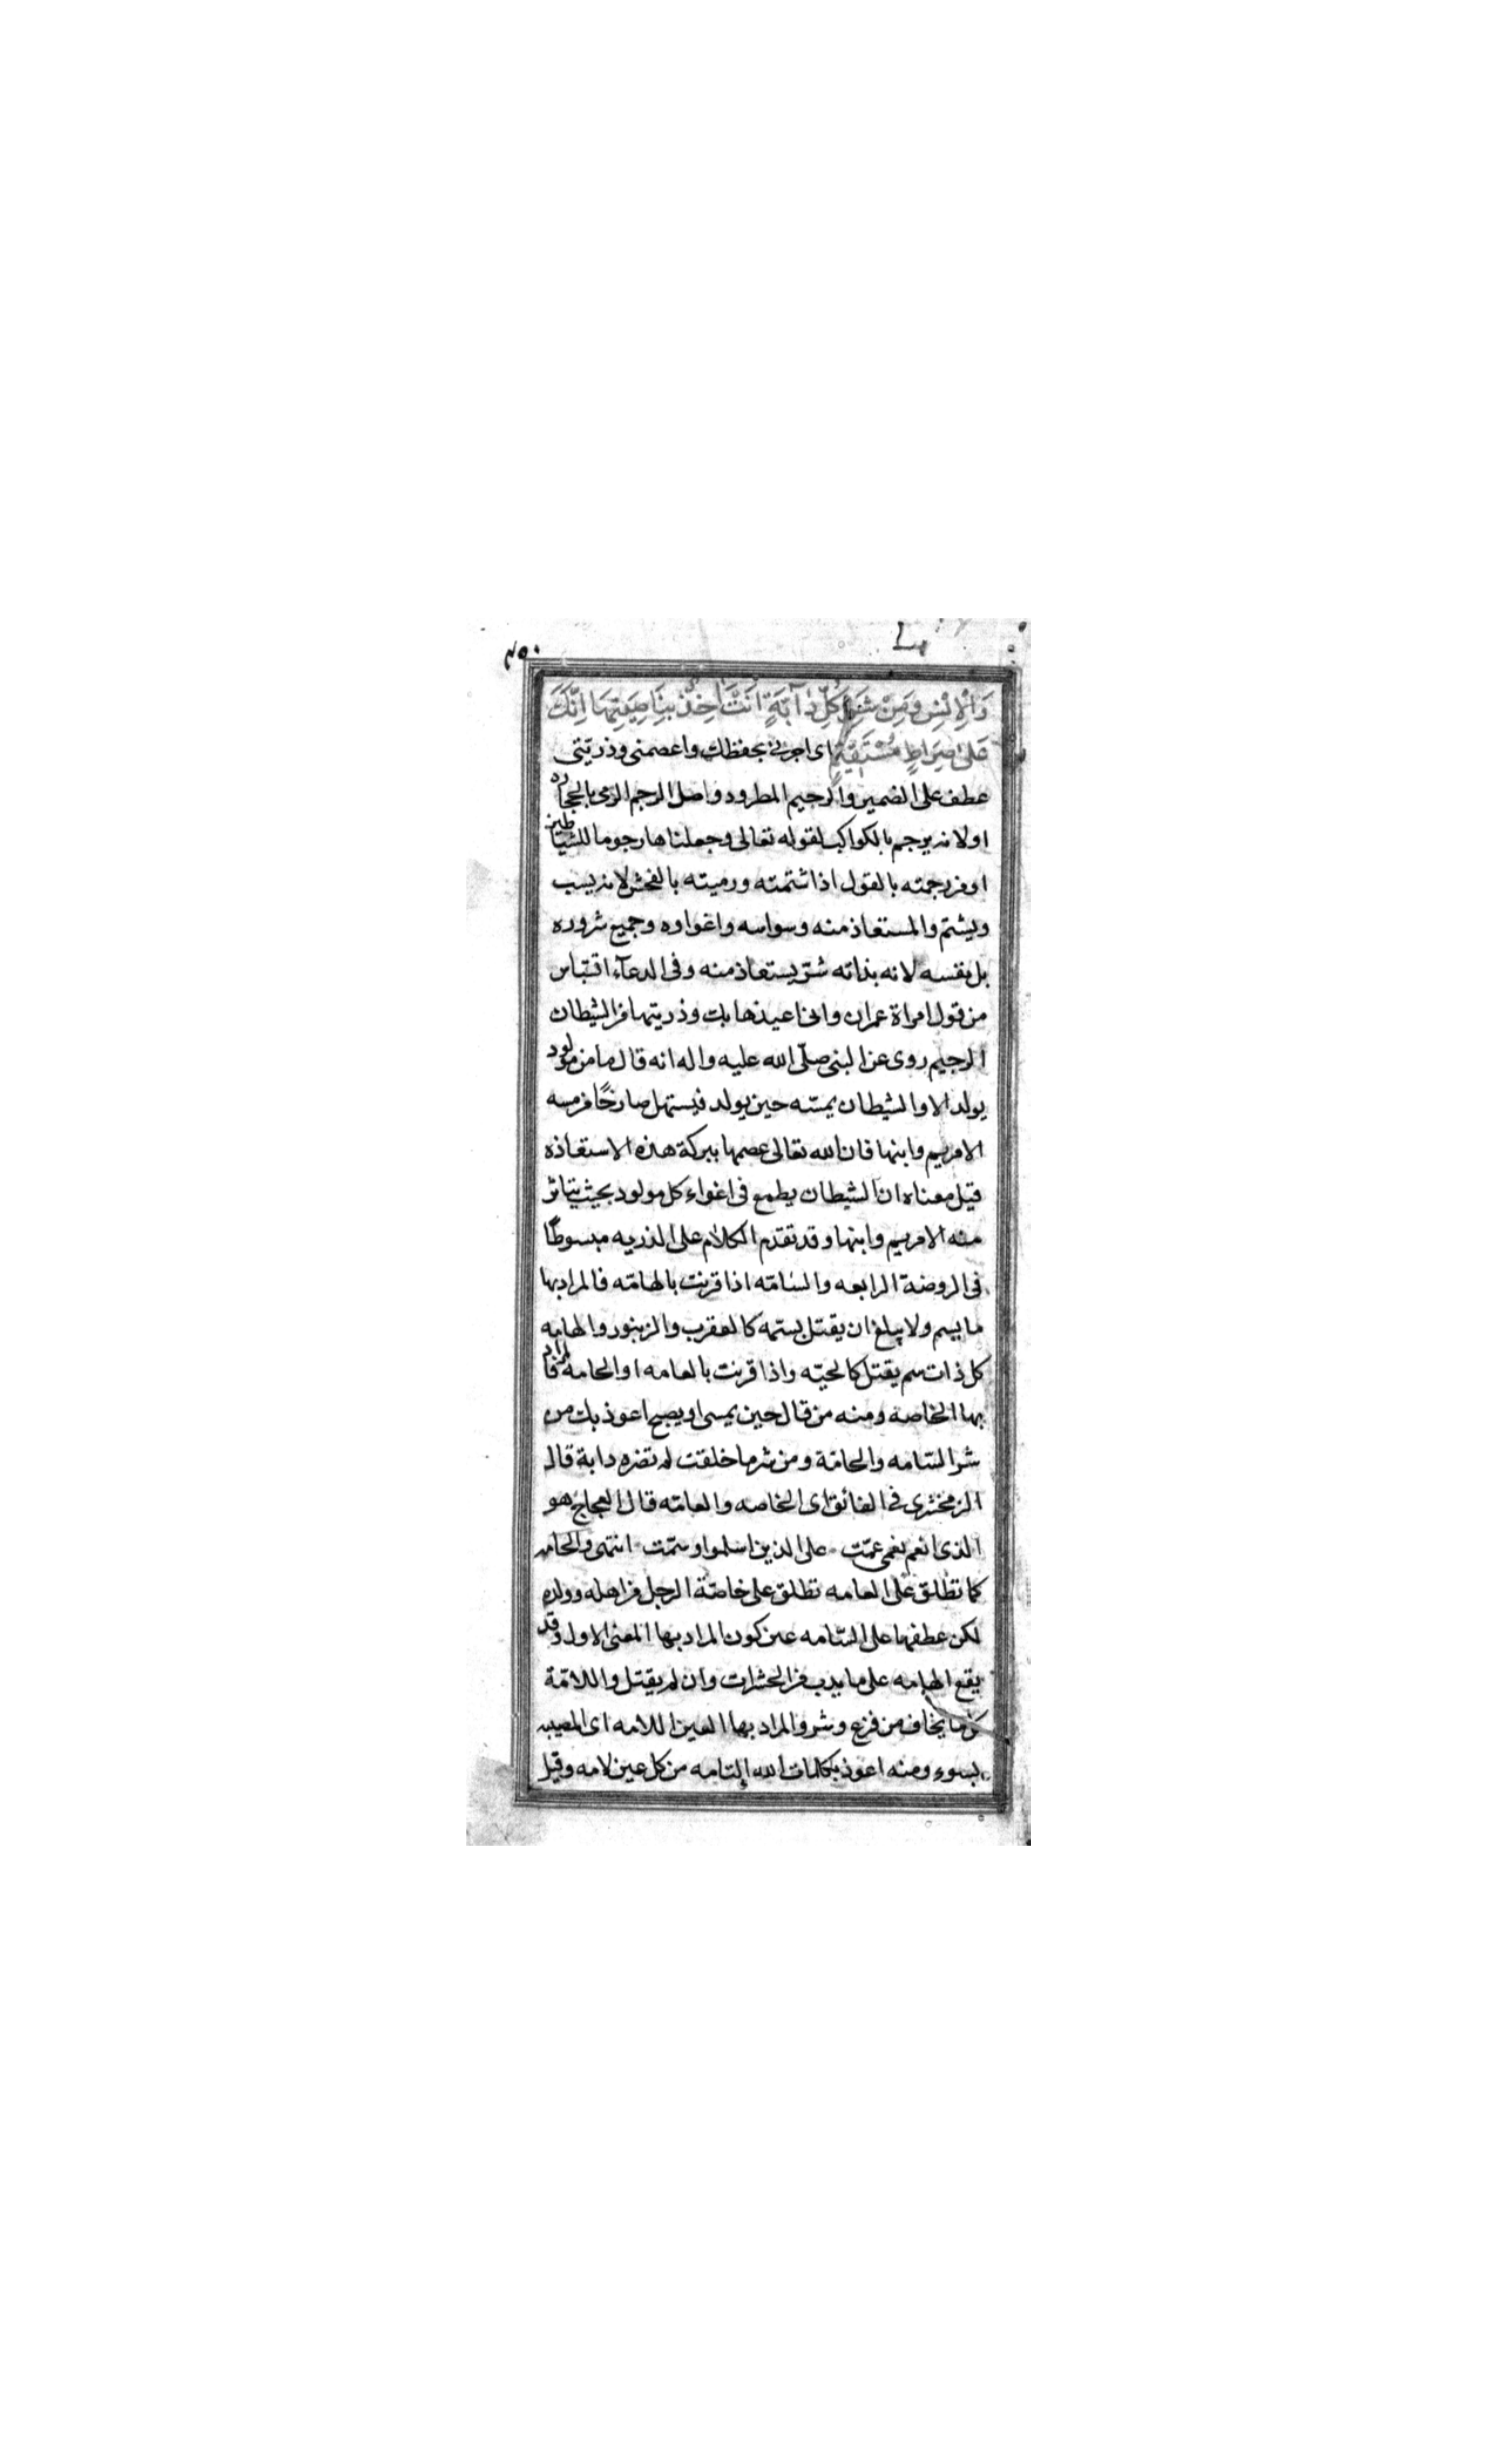 ٢٥٠
وَالْاِنْسِ وَمِنْ شَرِّ كُلِّ دٰآبَّةٍ اَنْتَ اٰخِذٌ بِنٰاصِيَتِهٰا اِنَّكَ
عَلىٰ صِرٰاطٍ مُسْتَقيٖمٍ اى اجرنى بحفظك واعصمنى وذريّتى
عطف على الضمير والرجيم المطرود واصل الرجم الرمى بالحجاره
او لانه يرجم بالكواكب لقوله تعالى وجعلناها رجوما للشياطين
او من رجمته بالقول اذا شتمته ورميته بالفحش لانه يسب
ويشتم والمستعاذ منه وسواسه واغواوه وجميع شروره
بل نفسه لانه بذاته شرّ يستعاذ منه وفى الدعآء اقتباس
من قول امراة عمران وانى اعيذها بك وذريتها من الشيطان
الرجيم روى عن النبى صلّى الله عليه واله انه قال ما من مولود
يولد الا والشيطان يمسّه حين يولد فيستهل صارخًا من مسه
الا مريم وابنها فان الله تعالى عصمها ببركة هذه الاستعاذه
قيل معناه ان الشيطان يطمع فى اغواء كل مولود بحيث يتاثر
منه الا مريم وابنها وقد تقدم الكلام على الذريه مبسوطًا
فى الروضة الرابعه والسّامّه اذا قرنت بالهامّه فالمراد بها
ما يسم ولا يبلغ ان يقتل بسمّه كالعقرب والزنبور والهامه
كل ذات سم يقتل كالحيّه واذا قرنت بالعامه او الحامه فالمراد
بها الخاصه ومنه من قال حين يمسى او يصبح اعوذ بك من
شر السّامه والحامّة ومن شر ما خلقت لم تضره دابة قال
الزمخشرى فى الفائق اى الخاصه والعامّه قال العجاج هو
الذى انعم نعمى عمّت . على الذين اسلموا وسمّت . انتهى والحامه
كما تطلق على العامه تطلق على خاصّة الرجل من اهله وولده
لكن عطفها على السّامه عين كون المراد بها المعنى الاول وقد
يقع الهامه على ما يدب من الحشرات وان لم يقتل واللامّة
كل ما يخاف من فزع وشر والمراد بها العين اللامه اى المصيبه
بسوء ومنه اعوذ بكلمات الله التامه من كل عين لامه وقيل